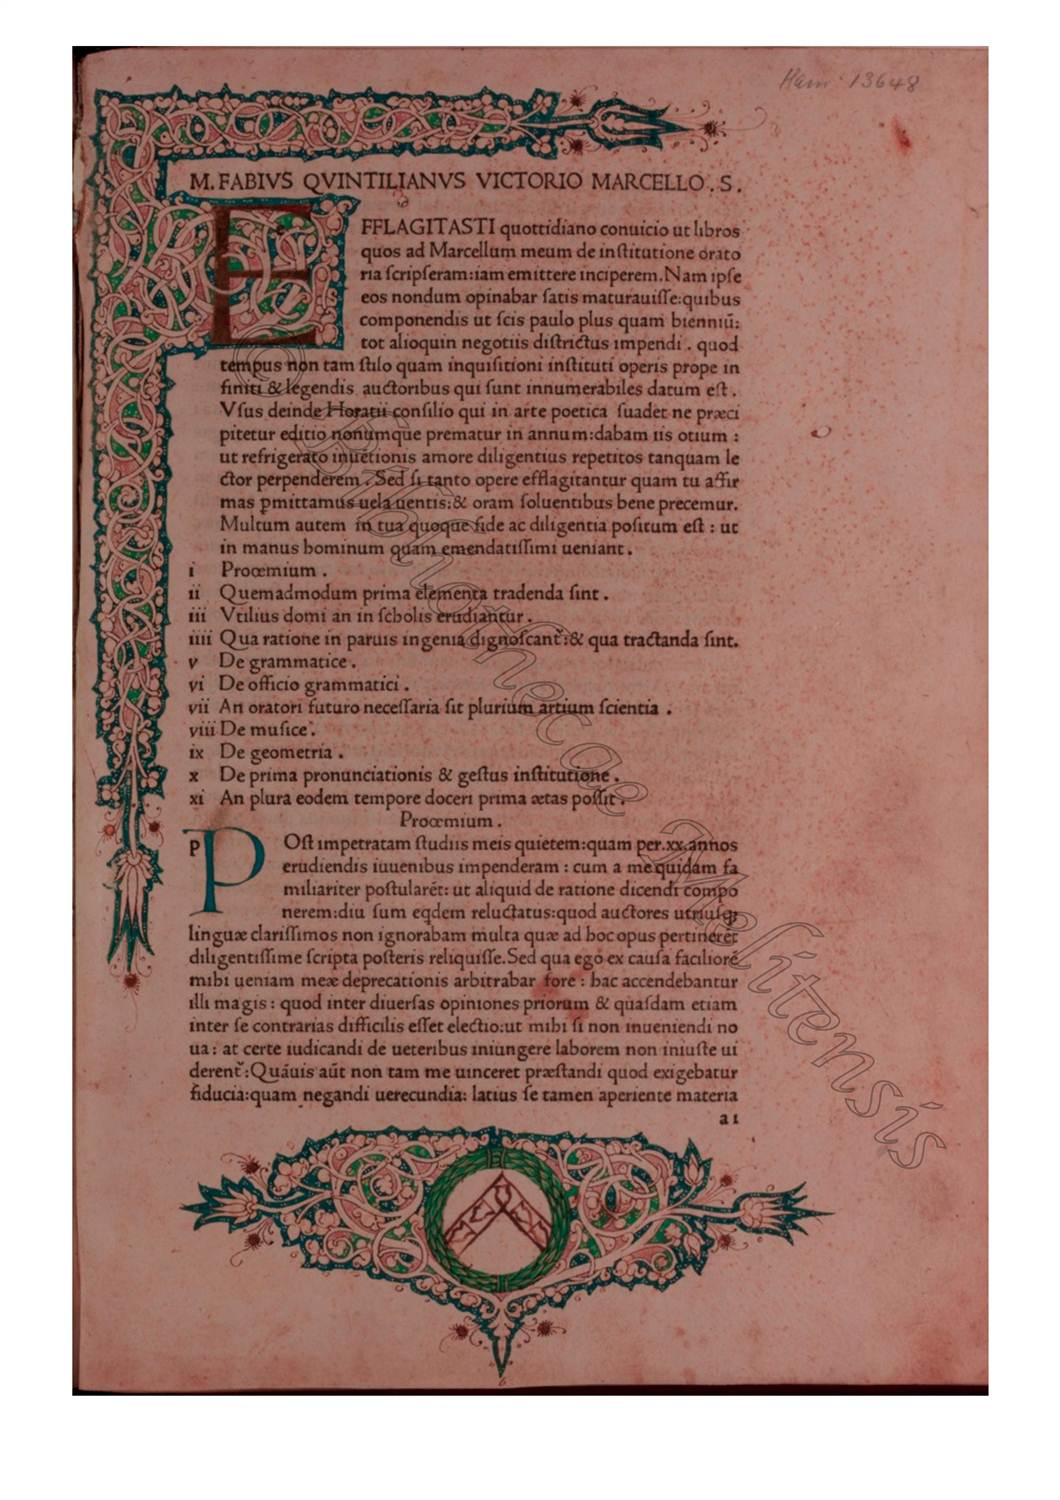 Ham 13648
M. FABIVS QVINTILIANVS VICTORIO MARCELLO . S .
EFFLAGITASTI quottidiano conuicio ut libros
quos ad Marcellum meum de institutione orato
ria scripseram:iam emittere inciperem. Nam ipse
eos nondum opinabar satis maturauisse:quibus
componendis ut scis paulo plus quam bienniū:
tot alioquin negotiis districtus impendi . quod
tempus non tam stilo quam inquisitioni instituti operis prope in
finiti & legendis auctoribus qui sunt innumerabiles datum est .
Vsus deinde Horatii consilio qui in arte poetica suadet ne præci
pitetur editio nonumque prematur in annum:dabam iis otium :
ut refrigerato inuētionis amore diligentius repetitos tanquam le
ctor perpenderem . Sed si tanto opere efflagitantur quam tu affir
mas pmittamus uela uentis:& oram soluentibus bene precemur.
Multum autem in tua quoque fide ac diligentia positum est : ut
in manus hominum quam emendatissimi ueniant .
i Proœmium .
ii Quemadmodum prima elementa tradenda sint .
iii Vtilius domi an in scholis erudiantur .
iiii Qua ratione in paruis ingenia dignoscant̃:& qua tractanda sint.
v De grammatice .
vi De officio grammatici .
vii An oratori futuro necessaria sit plurium artium scientia .
viii De musice .
ix De geometria .
x De prima pronunciationis & gestus institutione .
xi An plura eodem tempore doceri prima ætas possit .
Proœmium .
p POst impetratam studiis meis quietem:quam per.xx.annos
erudiendis iuuenibus impenderam : cum a me quidam fa
miliariter postularēt: ut aliquid de ratione dicendi compo
nerem:diu sum eqdem reluctatus:quod auctores utriusqȝ
linguæ clarissimos non ignorabam multa quæ ad hoc opus pertinerēt
diligentissime scripta posteris reliquisse.Sed qua ego ex causa faciliorē
mihi ueniam meæ deprecationis arbitrabar fore : hac accendebantur
illi magis : quod inter diuersas opiniones priorum & quasdam etiam
inter se contrarias difficilis esset electio:ut mihi si non inueniendi no
ua : at certe iudicandi de ueteribus iniungere laborem non iniuste ui
derent̃:Quāuis aūt non tam me uinceret præstandi quod exigebatur
fiducia:quam negandi uerecundia: latius se tamen aperiente materia
a 1
© Bibliothecae Melitensis